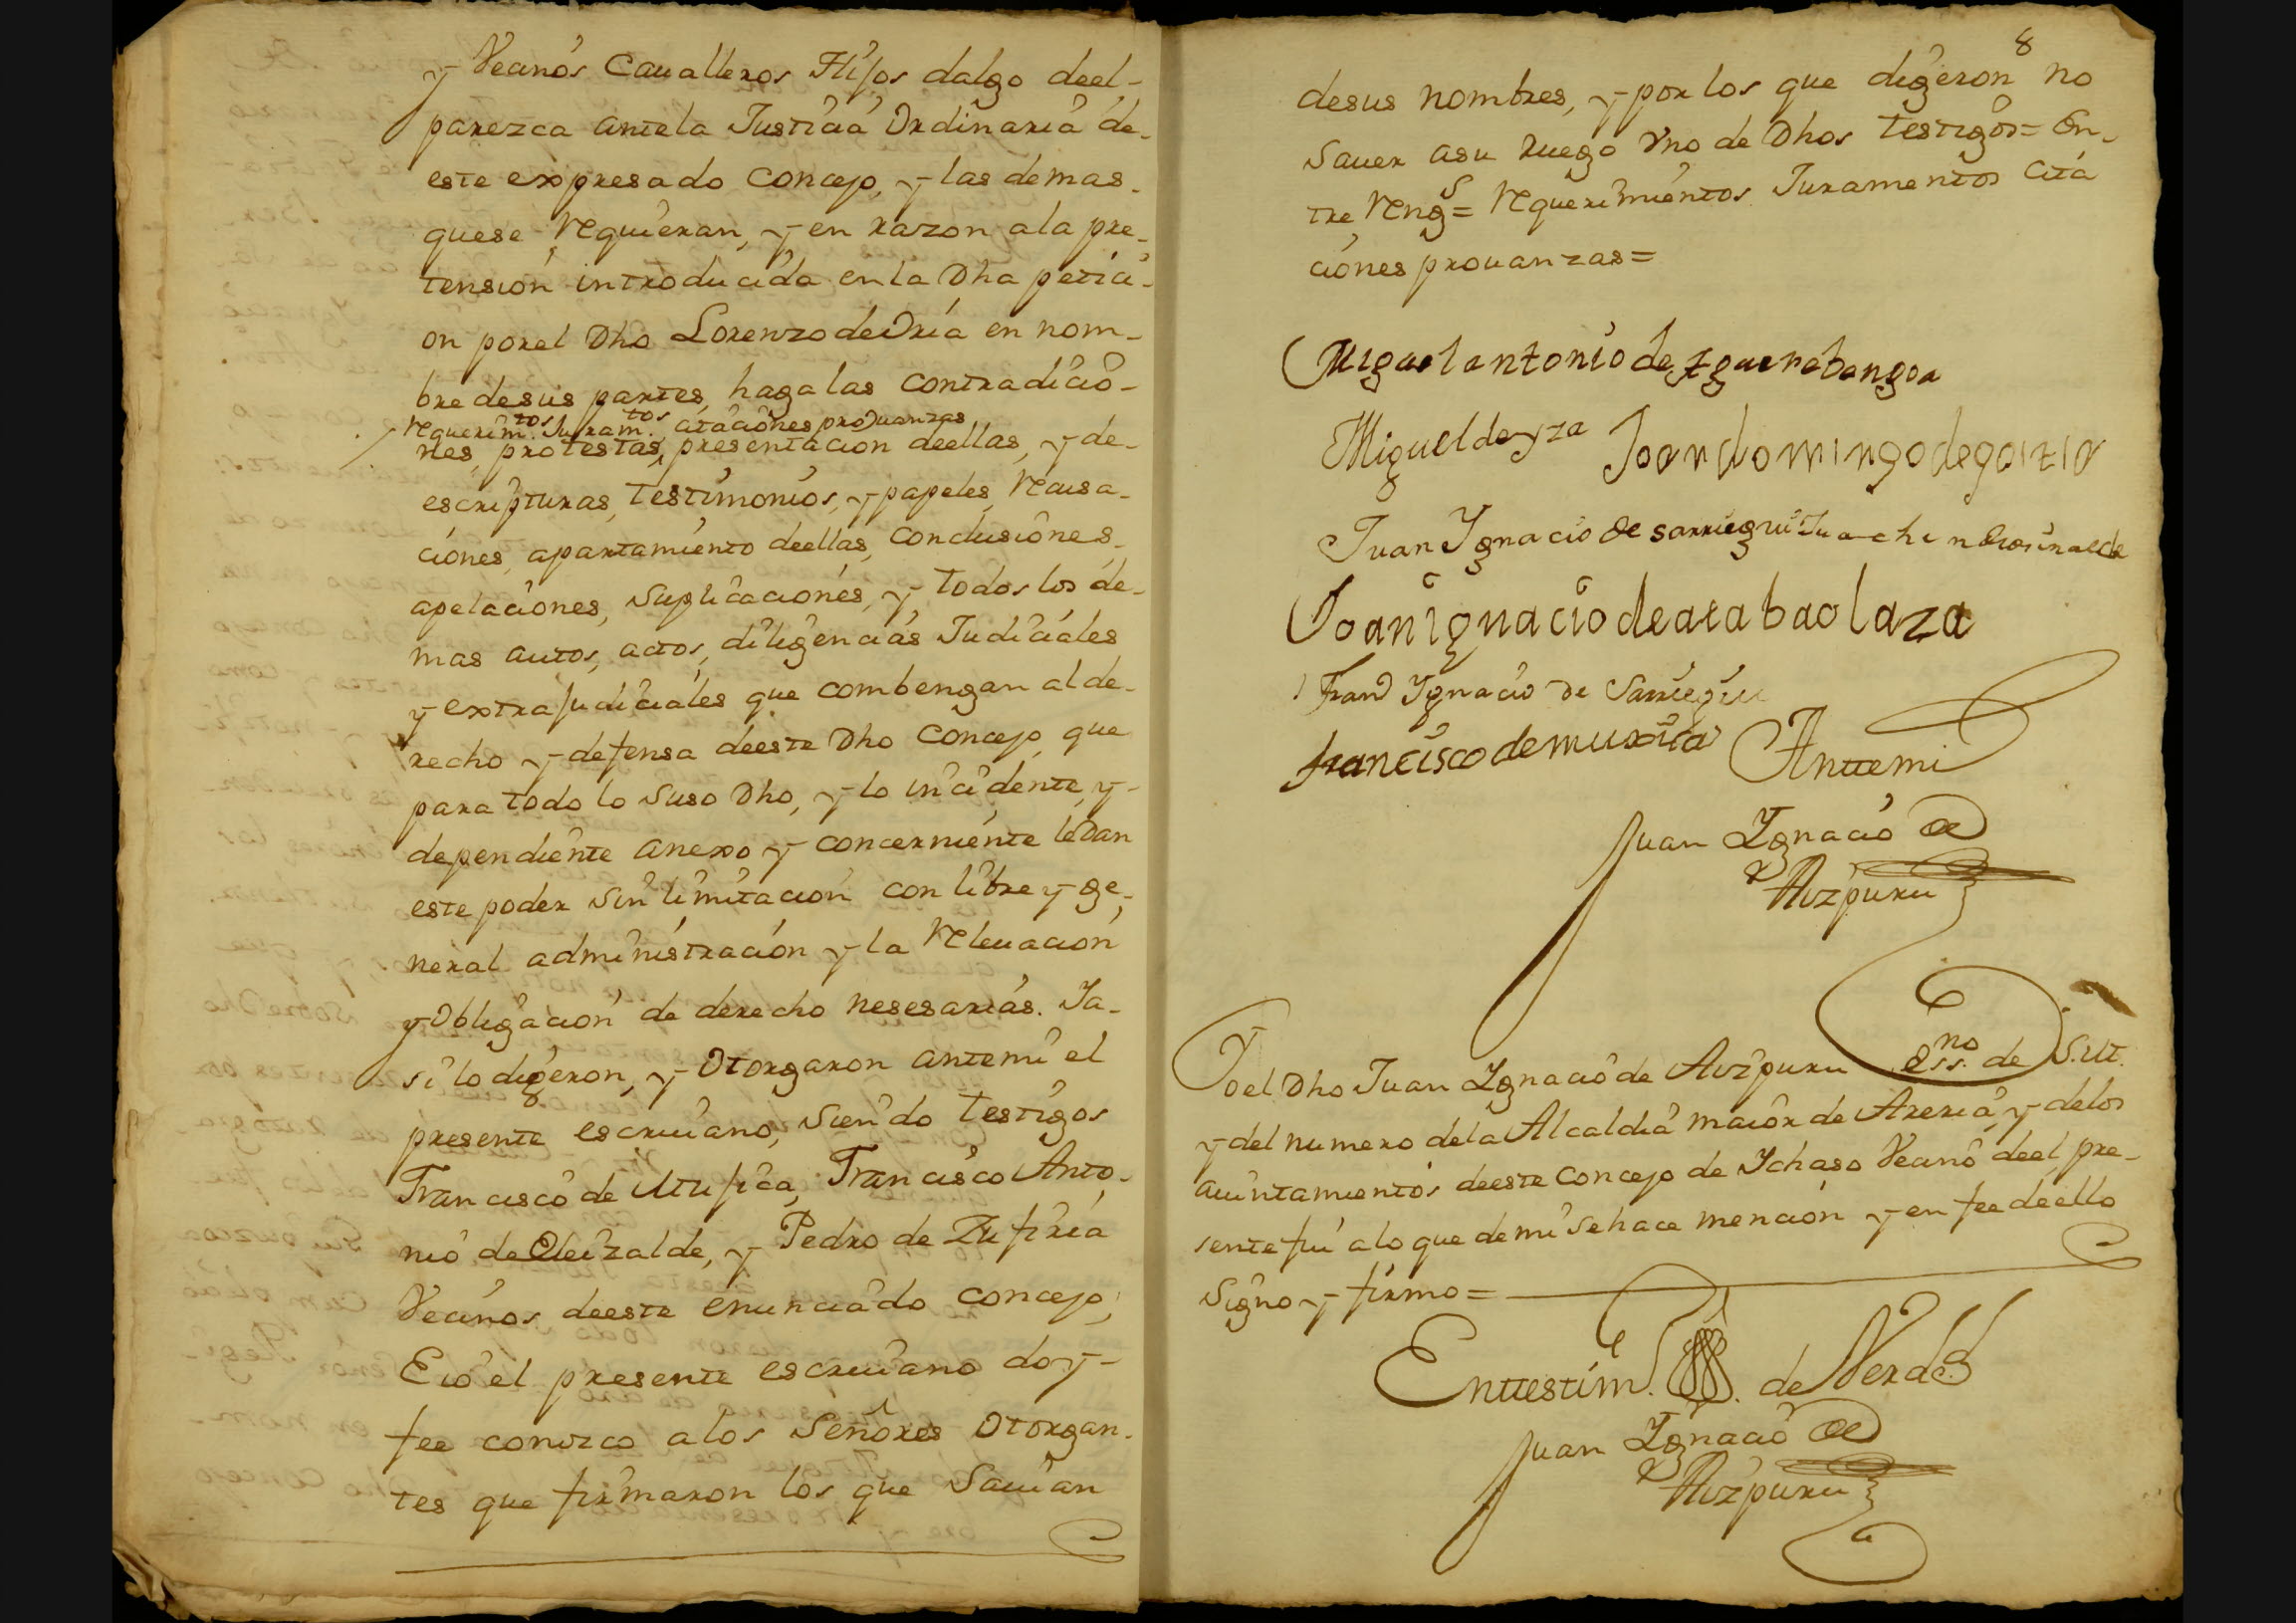 y Vecinos Caualleros Hijos dalgo deel-
parezca antela Justicia Ordinaria de-
este expresado concejo, y las demas-
quese requieran, y en razon ala pre-
tension introducida en la Dha petici-
on porel Dho Lorenzo de Oria en nom-
bre desus partes, haga las contradicio-
requerim.tos Juram.tos citaciones prouanzas
nes, protestas, presentacion deellas, y de-
escripturas, testimonios, y papeles, recusa-
ciones, apartamiento deellas, conclusiones,
apelaciones, suplicaciones, y todos los de-
mas autos, actos, diligencias Judiciales
y extrajudiciales que combengan al de-
recho y defensa deeste Dho concejo, que
para todo lo suso Dho, y lo incidente, y-
dependiente anexo y concerniente ledan
este poder sin limitacion con libre y ge-
neral administracion y la releuacion
y obligacion de derecho nesesarias. Ja-
si lo digeron, y otorgaron antemi el
presente escriuano, siendo testigos
Francisco de Utufica, Francisco Anto-
nio de Eleizalde, y Pedro de Zufiria
Vecinos deeste enunciado concejo;
E io el presente escriuano doy-
fee conozco alos Señores otorgan-
tes que firmaron los que sauian
8
desus nombres, y por los que digeron no
sauer asu ruego vno de Dhos testigos= En-
tre reng.s= requerimientos Juramentos cita
ciones prouanzas=
Miguel antonio de
Miguel de yza Joan domingo de goizia
Juan Ygnacio de sarriegui Juachin
Joan ignacio de arabaolaza
Fran.co Ygnacio de Sarriegui
francisco de muxica Anttemi
Juan Ygnacio de
Aizpuru
Yo el Dho Juan Ygnacio de Aizpuru ess.no de S.M.
y del numero dela Alcaldia maior de Areria, y delos
auintamientos deeste concejo de Ychaso Vecino deel pre-
sente fui alo que de mi sehace mencion y en fee deello
signo y firmo=
Enttestim. de Verdad
Juan Ygnacio de
Aizpuru